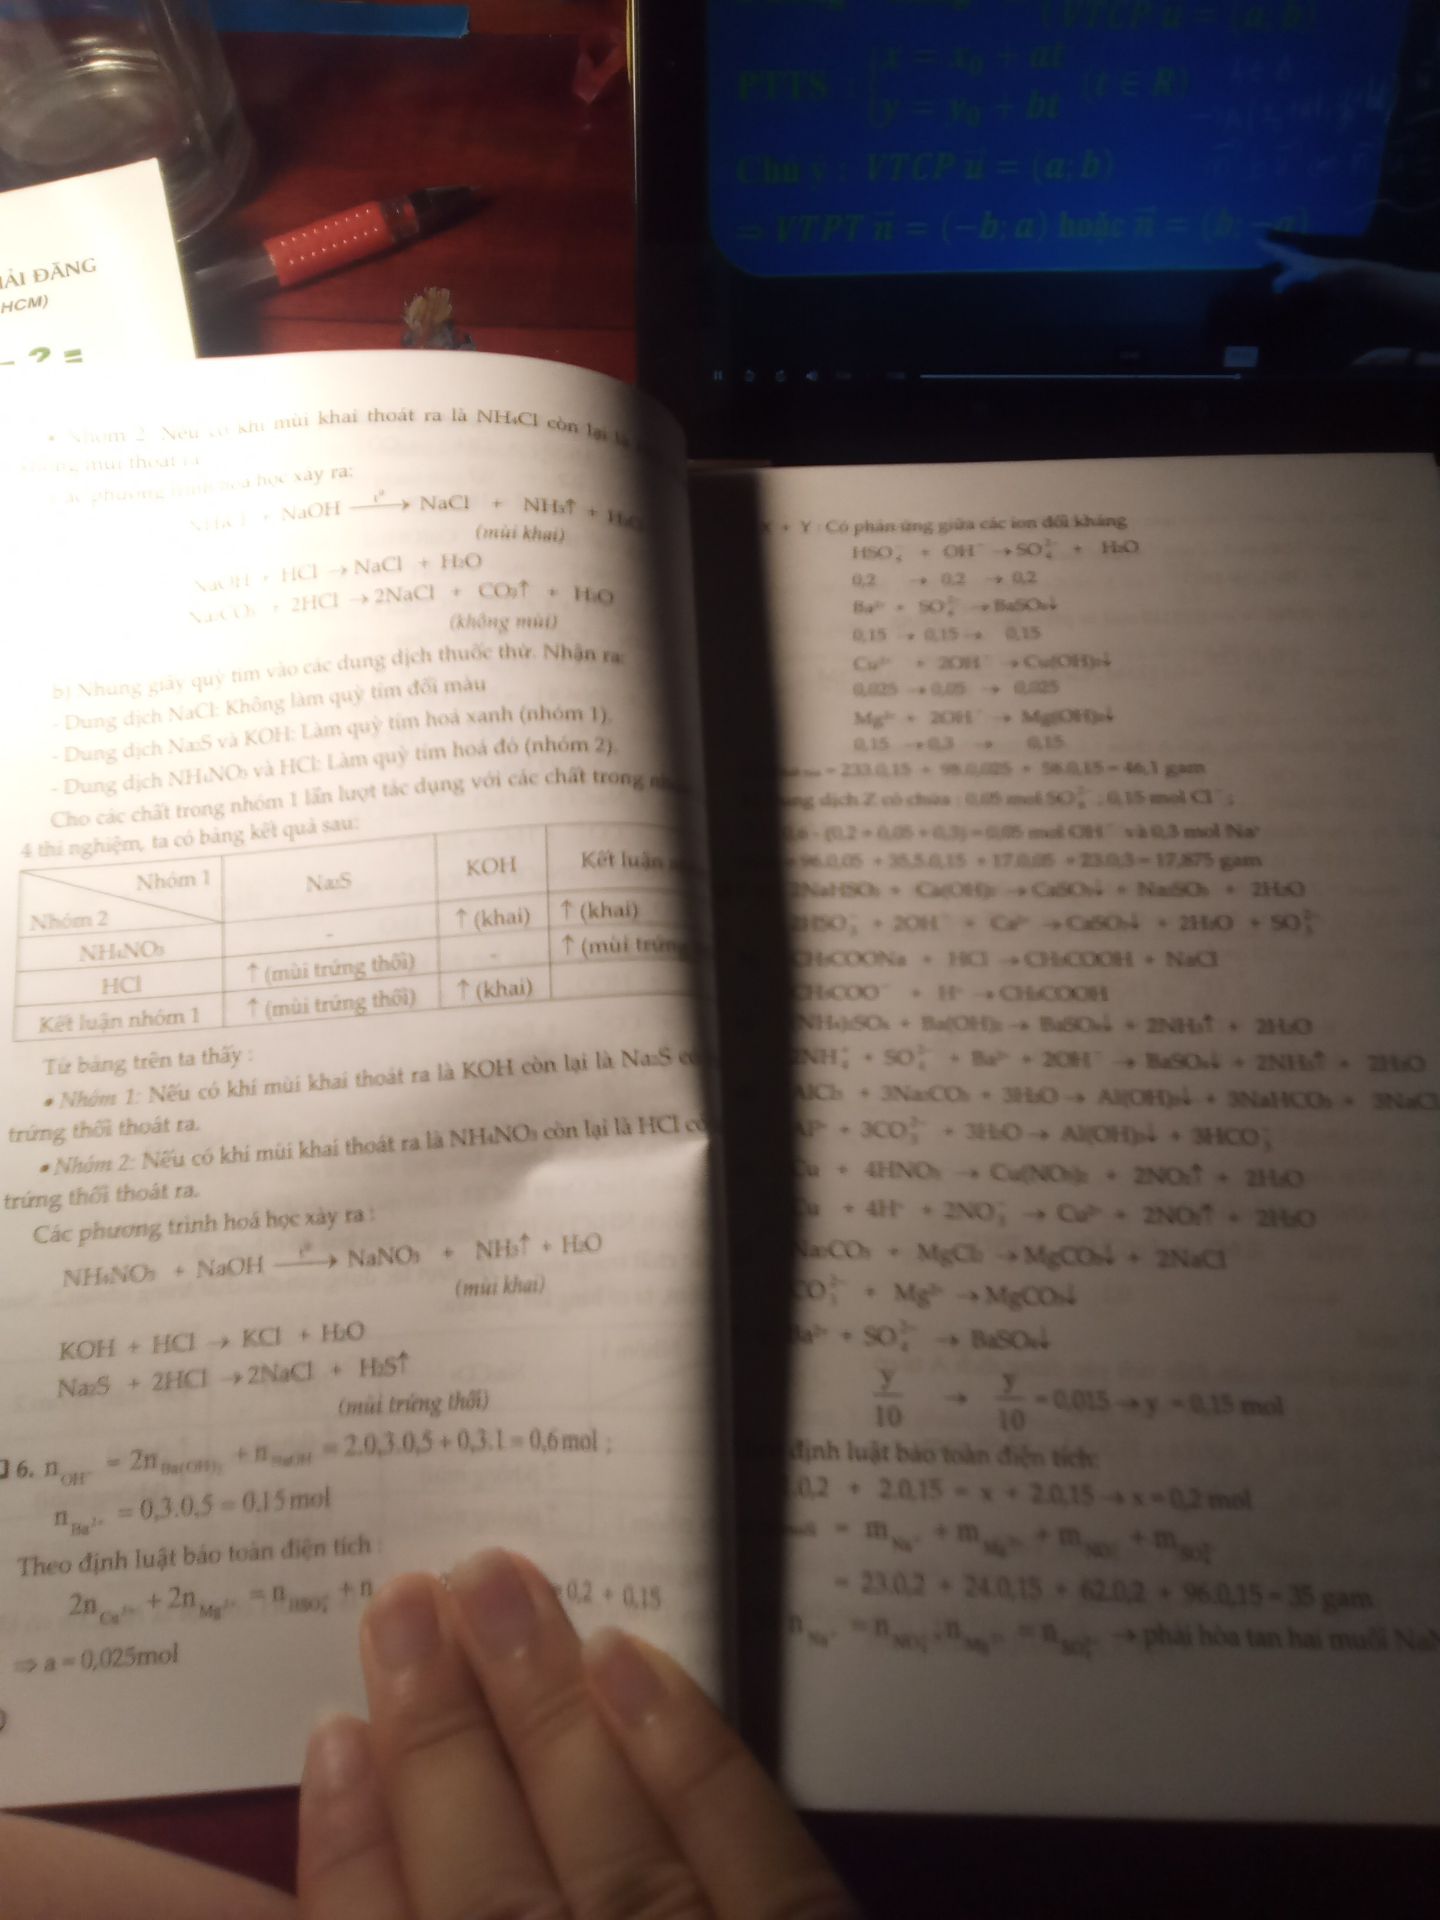 (VTCP u = (a; b)
PTTS : x = x₀ + at
y = y₀ + bt (t ∈ R)
Chú ý : VTCP u⃗ = (a; b)
⇒ VTPT n⃗ = (−b; a) hoặc n⃗ = (b; −a)
ẢI ĐĂNG
HCM)
- ? =
• Nhóm 2: Nếu có khí mùi khai thoát ra là NH₄Cl còn lại là
không mùi thoát ra
Các phương trình hoá học xảy ra:
NH₄Cl + NaOH —t⁰→ NaCl + NH₃↑ + H₂O
(mùi khai)
NaOH + HCl → NaCl + H₂O
Na₂CO₃ + 2HCl → 2NaCl + CO₂↑ + H₂O
(không mùi)
b) Nhúng giấy quỳ tím vào các dung dịch thuốc thử. Nhận ra:
- Dung dịch NaCl: Không làm quỳ tím đổi màu
- Dung dịch Na₂S và KOH: Làm quỳ tím hoá xanh (nhóm 1).
- Dung dịch NH₄NO₃ và HCl: Làm quỳ tím hoá đỏ (nhóm 2).
Cho các chất trong nhóm 1 lần lượt tác dụng với các chất trong
4 thí nghiệm, ta có bảng kết quả sau:
Nhóm 1 Na₂S KOH Kết luận
Nhóm 2
NH₄NO₃ - ↑ (khai) ↑ (khai)
HCl ↑ (mùi trứng thối) - ↑ (mùi trứng
Kết luận nhóm 1 ↑ (mùi trứng thối) ↑ (khai)
Từ bảng trên ta thấy :
• Nhóm 1: Nếu có khí mùi khai thoát ra là KOH còn lại là Na₂S có
trứng thối thoát ra.
• Nhóm 2: Nếu có khí mùi khai thoát ra là NH₄NO₃ còn lại là HCl có
trứng thối thoát ra.
Các phương trình hoá học xảy ra :
NH₄NO₃ + NaOH —t⁰→ NaNO₃ + NH₃↑ + H₂O
(mùi khai)
KOH + HCl → KCl + H₂O
Na₂S + 2HCl → 2NaCl + H₂S↑
(mùi trứng thối)
6. n OH⁻ = 2n Ba(OH)₂ + n NaOH = 2.0,3.0,5 + 0,3.1 = 0,6 mol ;
n Ba²⁺ = 0,3.0,5 = 0,15 mol
Theo định luật bảo toàn điện tích :
2n Cu²⁺ + 2n Mg²⁺ = n HSO₄⁻ + n 0,2 + 0,15
⇒ a = 0,025mol
X + Y : Có phản ứng giữa các ion đối kháng
HSO₄⁻ + OH⁻ → SO₄²⁻ + H₂O
0,2 → 0,2 → 0,2
Ba²⁺ + SO₄²⁻ → BaSO₄↓
0,15 → 0,15 → 0,15
Cu²⁺ + 2OH⁻ → Cu(OH)₂↓
0,025 → 0,05 → 0,025
Mg²⁺ + 2OH⁻ → Mg(OH)₂↓
0,15 → 0,3 → 0,15
= 233.0,15 + 98.0,025 + 58.0,15 = 46,1 gam
ng dịch Z có chứa : 0,05 mol SO₄²⁻ ; 0,15 mol Cl⁻ ;
0,6 - (0,2 + 0,05 + 0,3) = 0,05 mol OH⁻ và 0,3 mol Na⁺
= 96.0,05 + 35,5.0,15 + 17.0,05 + 23.0,3 = 17,875 gam
2NaHSO₃ + Ca(OH)₂ → CaSO₃↓ + Na₂SO₃ + 2H₂O
2HSO₃⁻ + 2OH⁻ + Ca²⁺ → CaSO₃↓ + 2H₂O + SO₃²⁻
CH₃COONa + HCl → CH₃COOH + NaCl
CH₃COO⁻ + H⁺ → CH₃COOH
(NH₄)₂SO₄ + Ba(OH)₂ → BaSO₄↓ + 2NH₃↑ + 2H₂O
2NH₄⁺ + SO₄²⁻ + Ba²⁺ + 2OH⁻ → BaSO₄↓ + 2NH₃↑ + 2H₂O
AlCl₃ + 3Na₂CO₃ + 3H₂O → Al(OH)₃↓ + 3NaHCO₃ + 3NaCl
Al³⁺ + 3CO₃²⁻ + 3H₂O → Al(OH)₃↓ + 3HCO₃⁻
Cu + 4HNO₃ → Cu(NO₃)₂ + 2NO₂↑ + 2H₂O
Cu + 4H⁺ + 2NO₃⁻ → Cu²⁺ + 2NO₂↑ + 2H₂O
Na₂CO₃ + MgCl₂ → MgCO₃↓ + 2NaCl
CO₃²⁻ + Mg²⁺ → MgCO₃↓
Ba²⁺ + SO₄²⁻ → BaSO₄↓
y/10 → y/10 = 0,015 → y = 0,15 mol
định luật bảo toàn điện tích:
.0,2 + 2.0,15 = x + 2.0,15 → x = 0,2 mol
= m Na⁺ + m Mg²⁺ + m NO₃⁻ + m SO₄²⁻
= 23.0,2 + 24.0,15 + 62.0,2 + 96.0,15 = 35 gam
n Na⁺ = n NO₃⁻ ; n Mg²⁺ = n SO₄²⁻ → phải hòa tan hai muối NaN